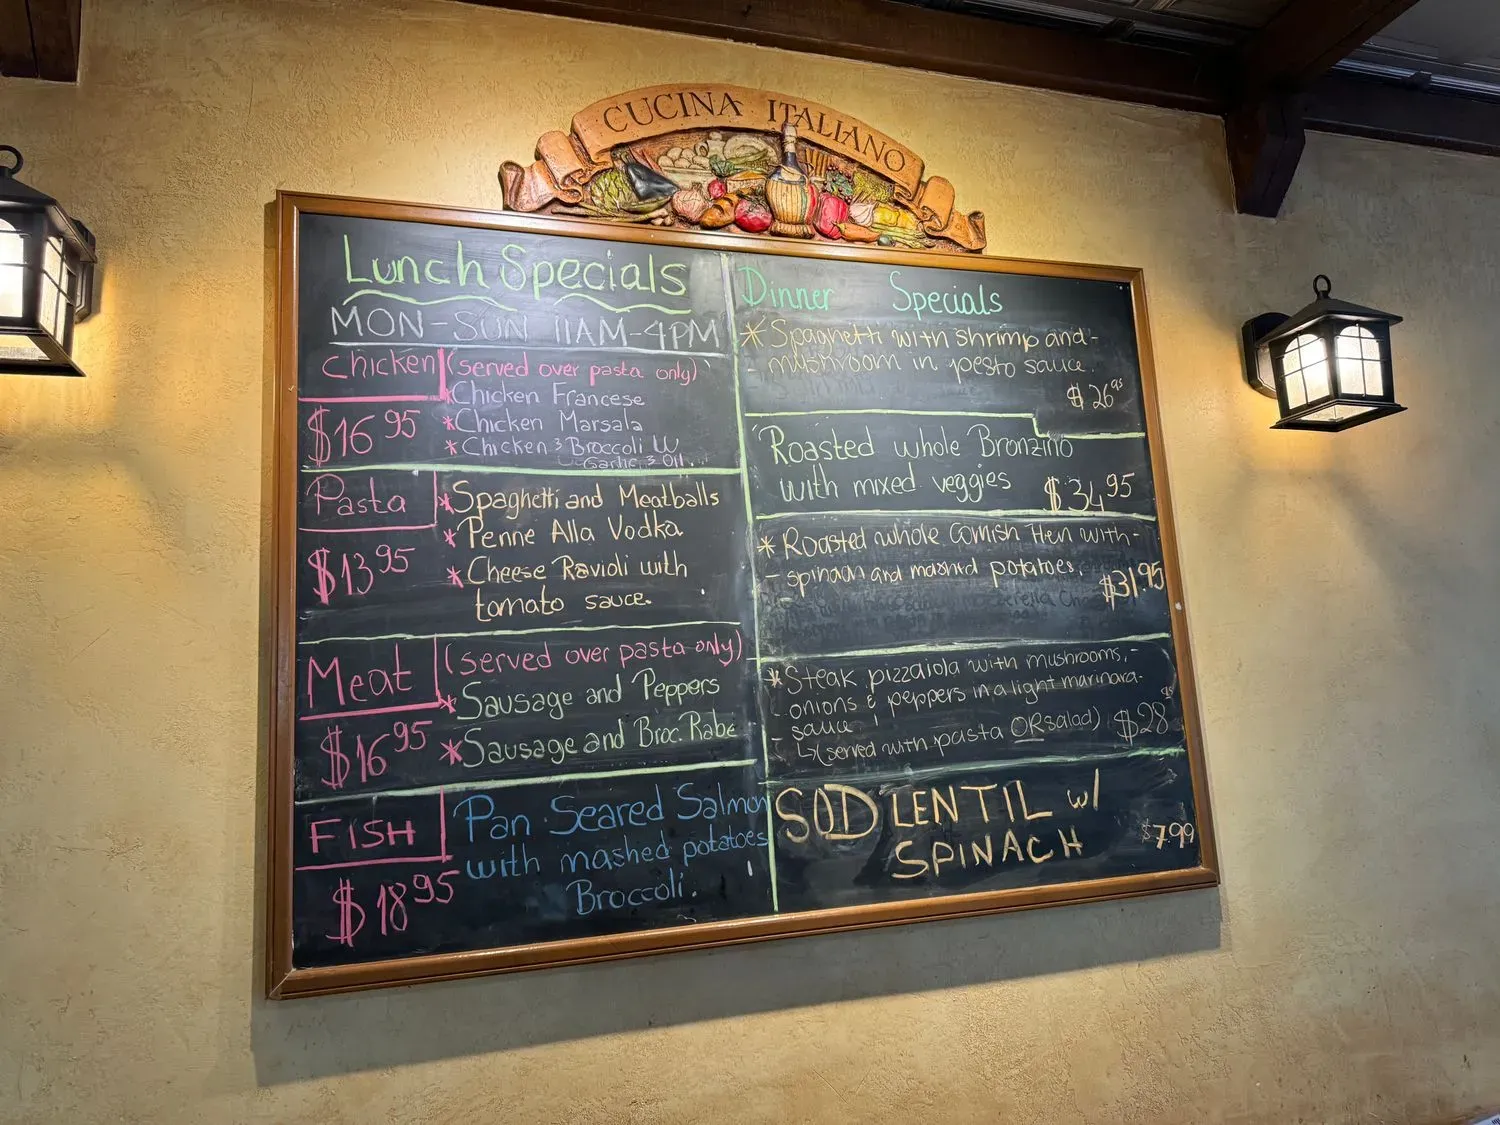 CUCINA ITALIANO
Lunch Specials
MON-SUN 11AM-4PM
Chicken (served over pasta only)
$16.95
*Chicken Francese
*Chicken Marsala
*Chicken & Broccoli W
Garlic & Oil.
Pasta
$13.95
*Spaghetti and Meatballs
*Penne Alla Vodka
*Cheese Ravioli with
tomato sauce.
Meat (served over pasta only)
$16.95
*Sausage and Peppers
*Sausage and Broc. Rabe
FISH
$18.95
Pan Seared Salmon
with mashed potatoes
Broccoli.
Dinner Specials
*Spaghetti with shrimp and-
- mushroom in pesto sauce.
$26.95
Roasted whole Bronzino
with mixed veggies $34.95
*Roasted whole Cornish Hen with-
- spinach and mashed potatoes.
$31.95
*Steak pizzaiola with mushrooms,-
- onions & peppers in a light marinara-
- sauce
- ↳(served with pasta OR salad) $28.95
SOD LENTIL w/
SPINACH
$7.99